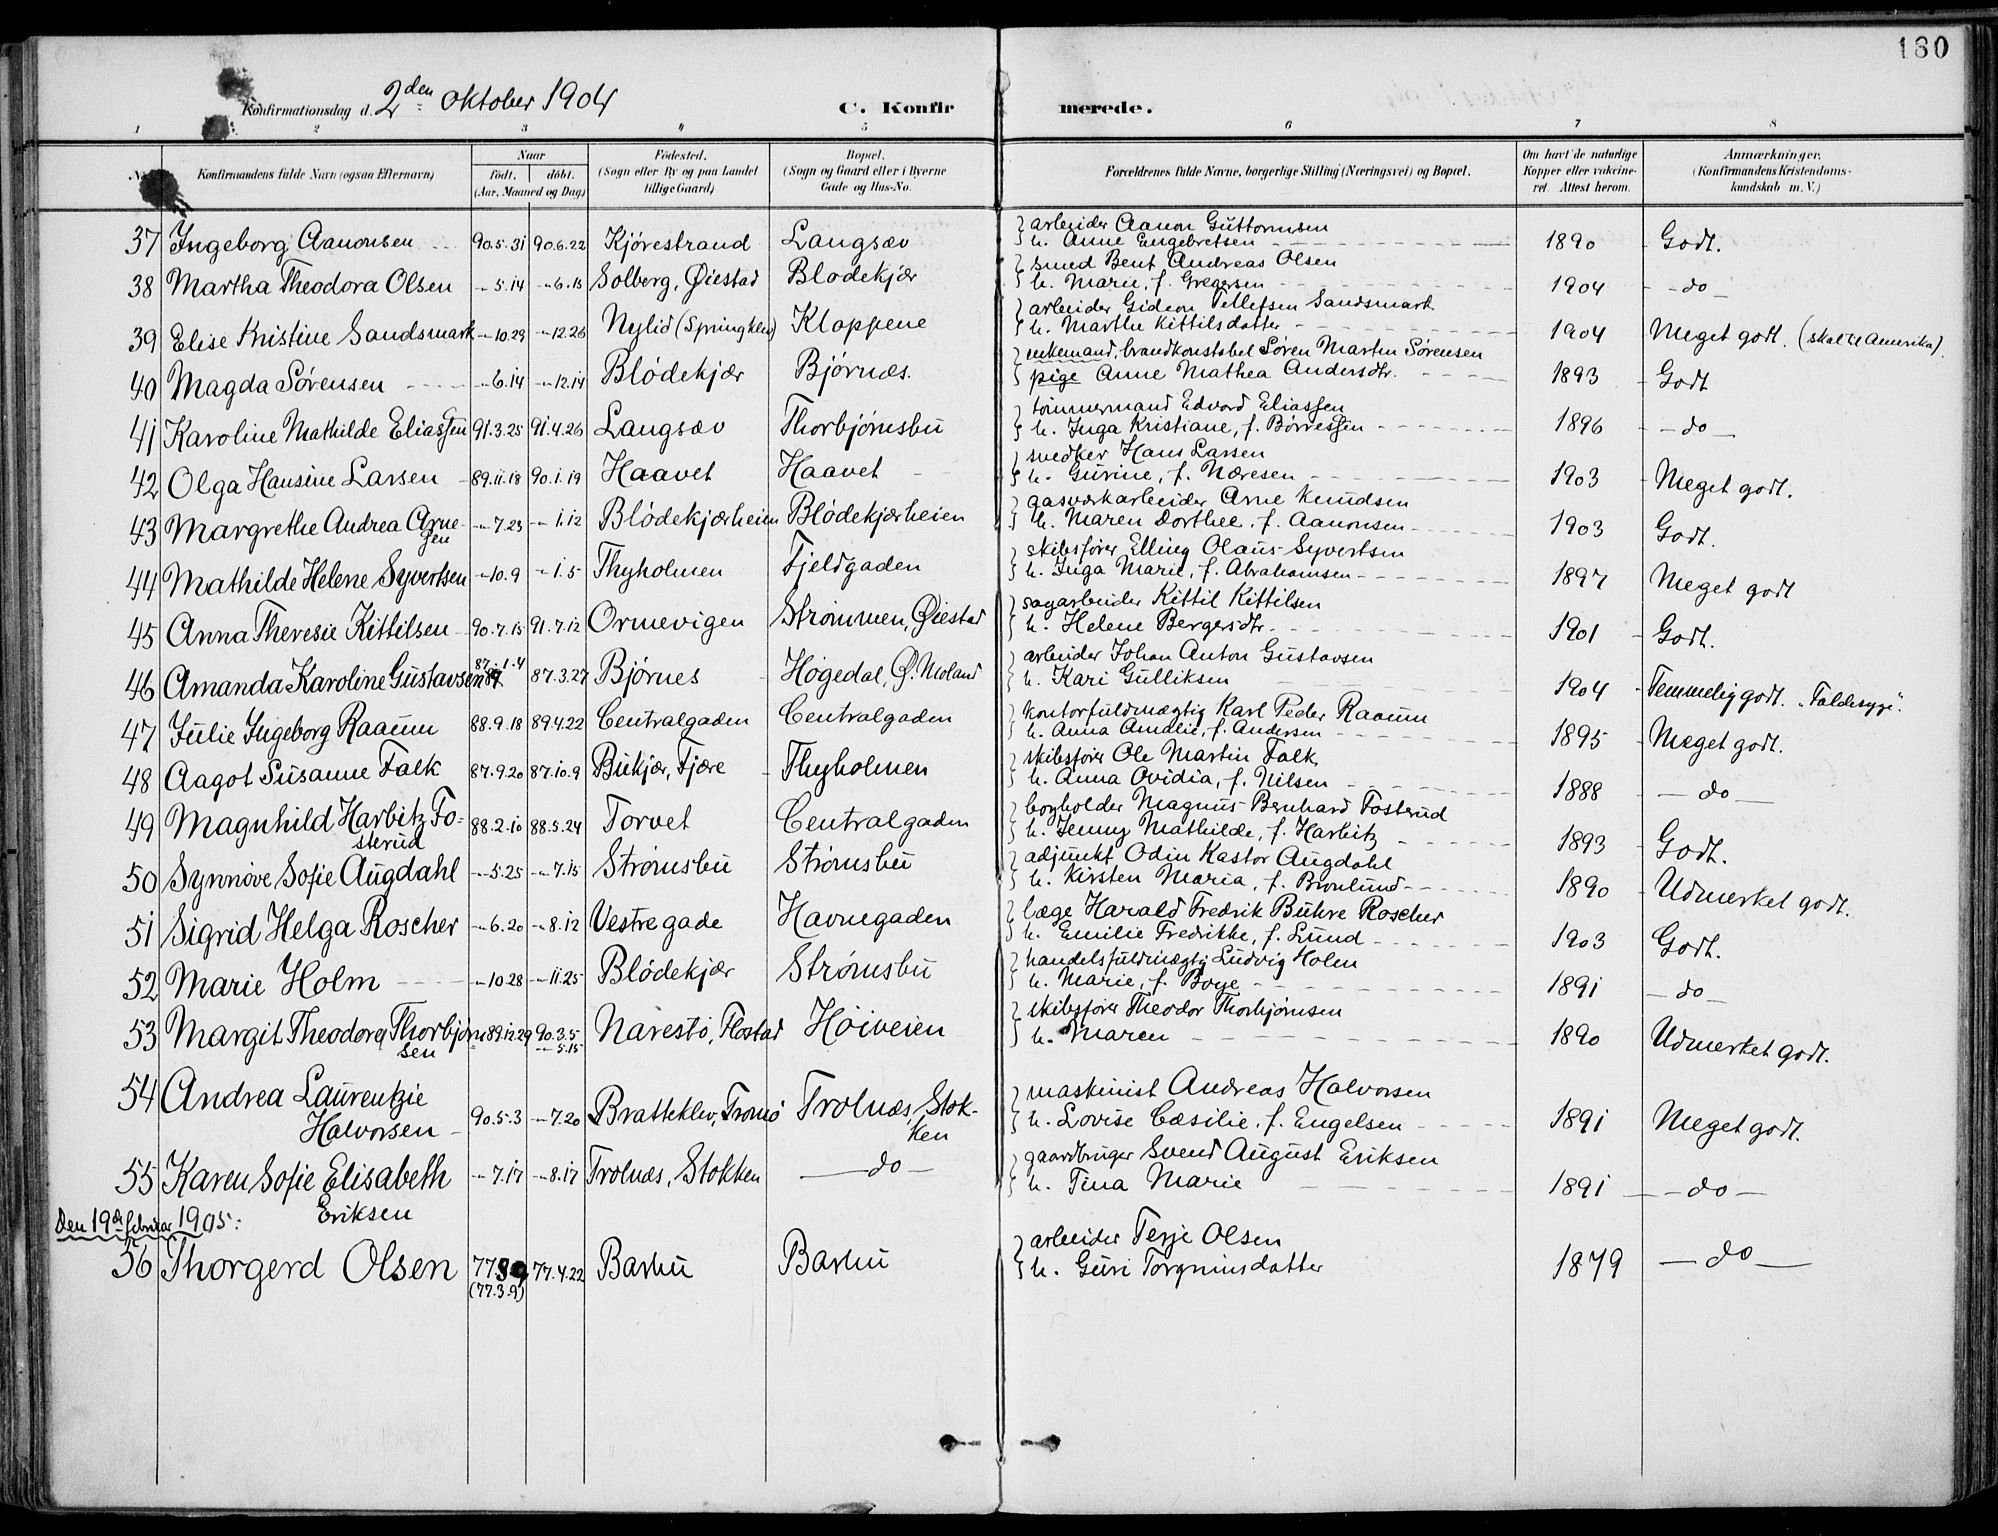 130
Konfirmationsdag d. 2den oktober 1904 C. Konfirmerede.
1 2 3 4 5 6 7 8
Konfirmandens fulde Navn (ogsaa Efternavn) Naar født. døbt. (Aar, Maaned og Dag) Fødested. (Sogn eller By og paa Landet tillige Gaard) Bopæl. (Sogn og Gaard eller i Byerne Gade og Hus-No. Forældrenes fulde Navne, borgerlige Stilling (Næringsvei) og Bopæl. Om havt de naturlige Kopper eller vakcineret. Attest herom. Anmærkninger. (Konfirmandens Kristendomskundskab m. V.)
37 Ingeborg Aanonsen 90.5.31 90.6.22 Kjørestrand Langsæv arbeider Aanon Guttormsen
h. Anne Engebretsen 1890 Godt.
38 Martha Theodora Olsen -"-5.14 -"-6.15 Solberg, Øiestad Blødekjær smed Bent Andreas Olsen
h. Marie, f. Gregersen 1904 -do-
39 Elise Kristine Sandsmark -"-10.29 -"-12.26 Nylid (Springklev) Kloppene arbeider Gideon Tellefsen Sandsmark
h. Marthe Kittilsdatter 1904 Meget godt. (skal til Amerika).
40 Magda Sørensen -"-6.14 -"-12.14 Blødekjær Bjørnæs. enkemand, brandkonstabel Søren Martin Sørensen
pige Anne Mathea Andersdtr. 1893 Godt
41 Karoline Mathilde Eliassen 91.3.25 91.4.26 Langsæv Thorbjørnsbu tømmermand Edvard Eliassen
h. Inga Kristiane, f. Børresen 1896 -do-
42 Olga Hansine Larsen 89.11.18 90.1.19 Haavet Haavet snedker Hans Larsen
h. Gurine, f. Næresen 1903 Meget godt.
43 Margrethe Andrea Arnesen -"-7.23 -"-1.12 Blødekjærheien Blødekjærheien gasværkarbeider Arne Knudsen
h. Maren Dorthee, f. Aanonsen 1903 Godt.
44 Mathilde Helene Syvertsen -"-10.9 -"-1.5 Thyholmen Fjeldgaden skibsfører Elling Olaus Syvertsen
h. Inga Marie, f. Abrahamsen 1897 Meget godt
45 Anna Theresie Kittilsen 90.7.15 91.7.12 Ormevigen Strømmen, Øiestad sagarbeider Kittil Kittilsen
h. Helene Bergersdtr. 1901 Godt.
46 Amanda Karoline Gustavsen 87.1.4 87.3.27 Bjørnes Høgedal, Ø. Moland arbeider Johan Anton Gustavsen
h. Kari Gulliksen 1904 Temmelig godt. "Faldesyge".
47 Julie Ingeborg Raaum 88.9.18 89.4.22 Centralgaden Centralgaden kontorfuldmægtig Karl Peder Raaum
h. Anna Amalie, f. Andersen 1895 Meget godt.
48 Aagot Susanne Falk 87.9.20 87.10.9 Bukjær, Fjære Thyholmen skibsfører Ole Martin Falk
h. Anna Ovidia, f. Nilsen 1888 -do-
49 Magnhild Harbitz Fosterud 88.2.10 88.5.24 Torvet Centralgaden bogholder Magnus Bernhard Fosterud
h. Jenny Mathilde, f. Harbitz 1893 Godt.
50 Synnøve Sofie Augdahl -"-5.25 -"-7.15 Strømsbu Strømsbu adjunkt Odin Kastor Augdahl
h. Kirsten Maria, f. Bronlund 1890 Udmerket godt.
51 Sigrid Helga Roscher -"-6.20 -"-8.12 Vestregade Havnegaden læge Harald Fredrik Buhre Roscher
h. Emilie Fredrikke, f. Lund 1903 Godt.
52 Marie Holm -"-10.28 -"-11.25 Blødekjær Strømsbu handelsfuldmægtig Ludvig Holm
h. Marie, f. Boye 1891 -do-
53 Margit Theodora Thorbjørnsen 89.12.29 90.3.5 -"-5.15 Narestø, Flostad Høiveien skibsfører Theodor Thorbjørnsen
h. Maren 1890 Udmerket godt.
54 Andrea Laurentzie
Halvorsen 90.5.3 -"-7.20 Bratteklev, Tromø Trolnæs, Stokken maskinist Andreas Halvorsen
h. Lovise Cæsilie, f. Engelsen 1891 Meget godt.
55 Karen Sofie Elisabeth
Eriksen -"-7.17 -"-8.17 Trolnæs, Stokken -do- gaardbruger Svend August Eriksen
h. Tina Marie 1891 -do-
Den 19de februar 1905:
56 Thorgerd Olsen (77.3.9) 77.4.22 Barbu Barbu arbeider Terje Olsen
h. Guri Torgrimsdatter 1879 -do-